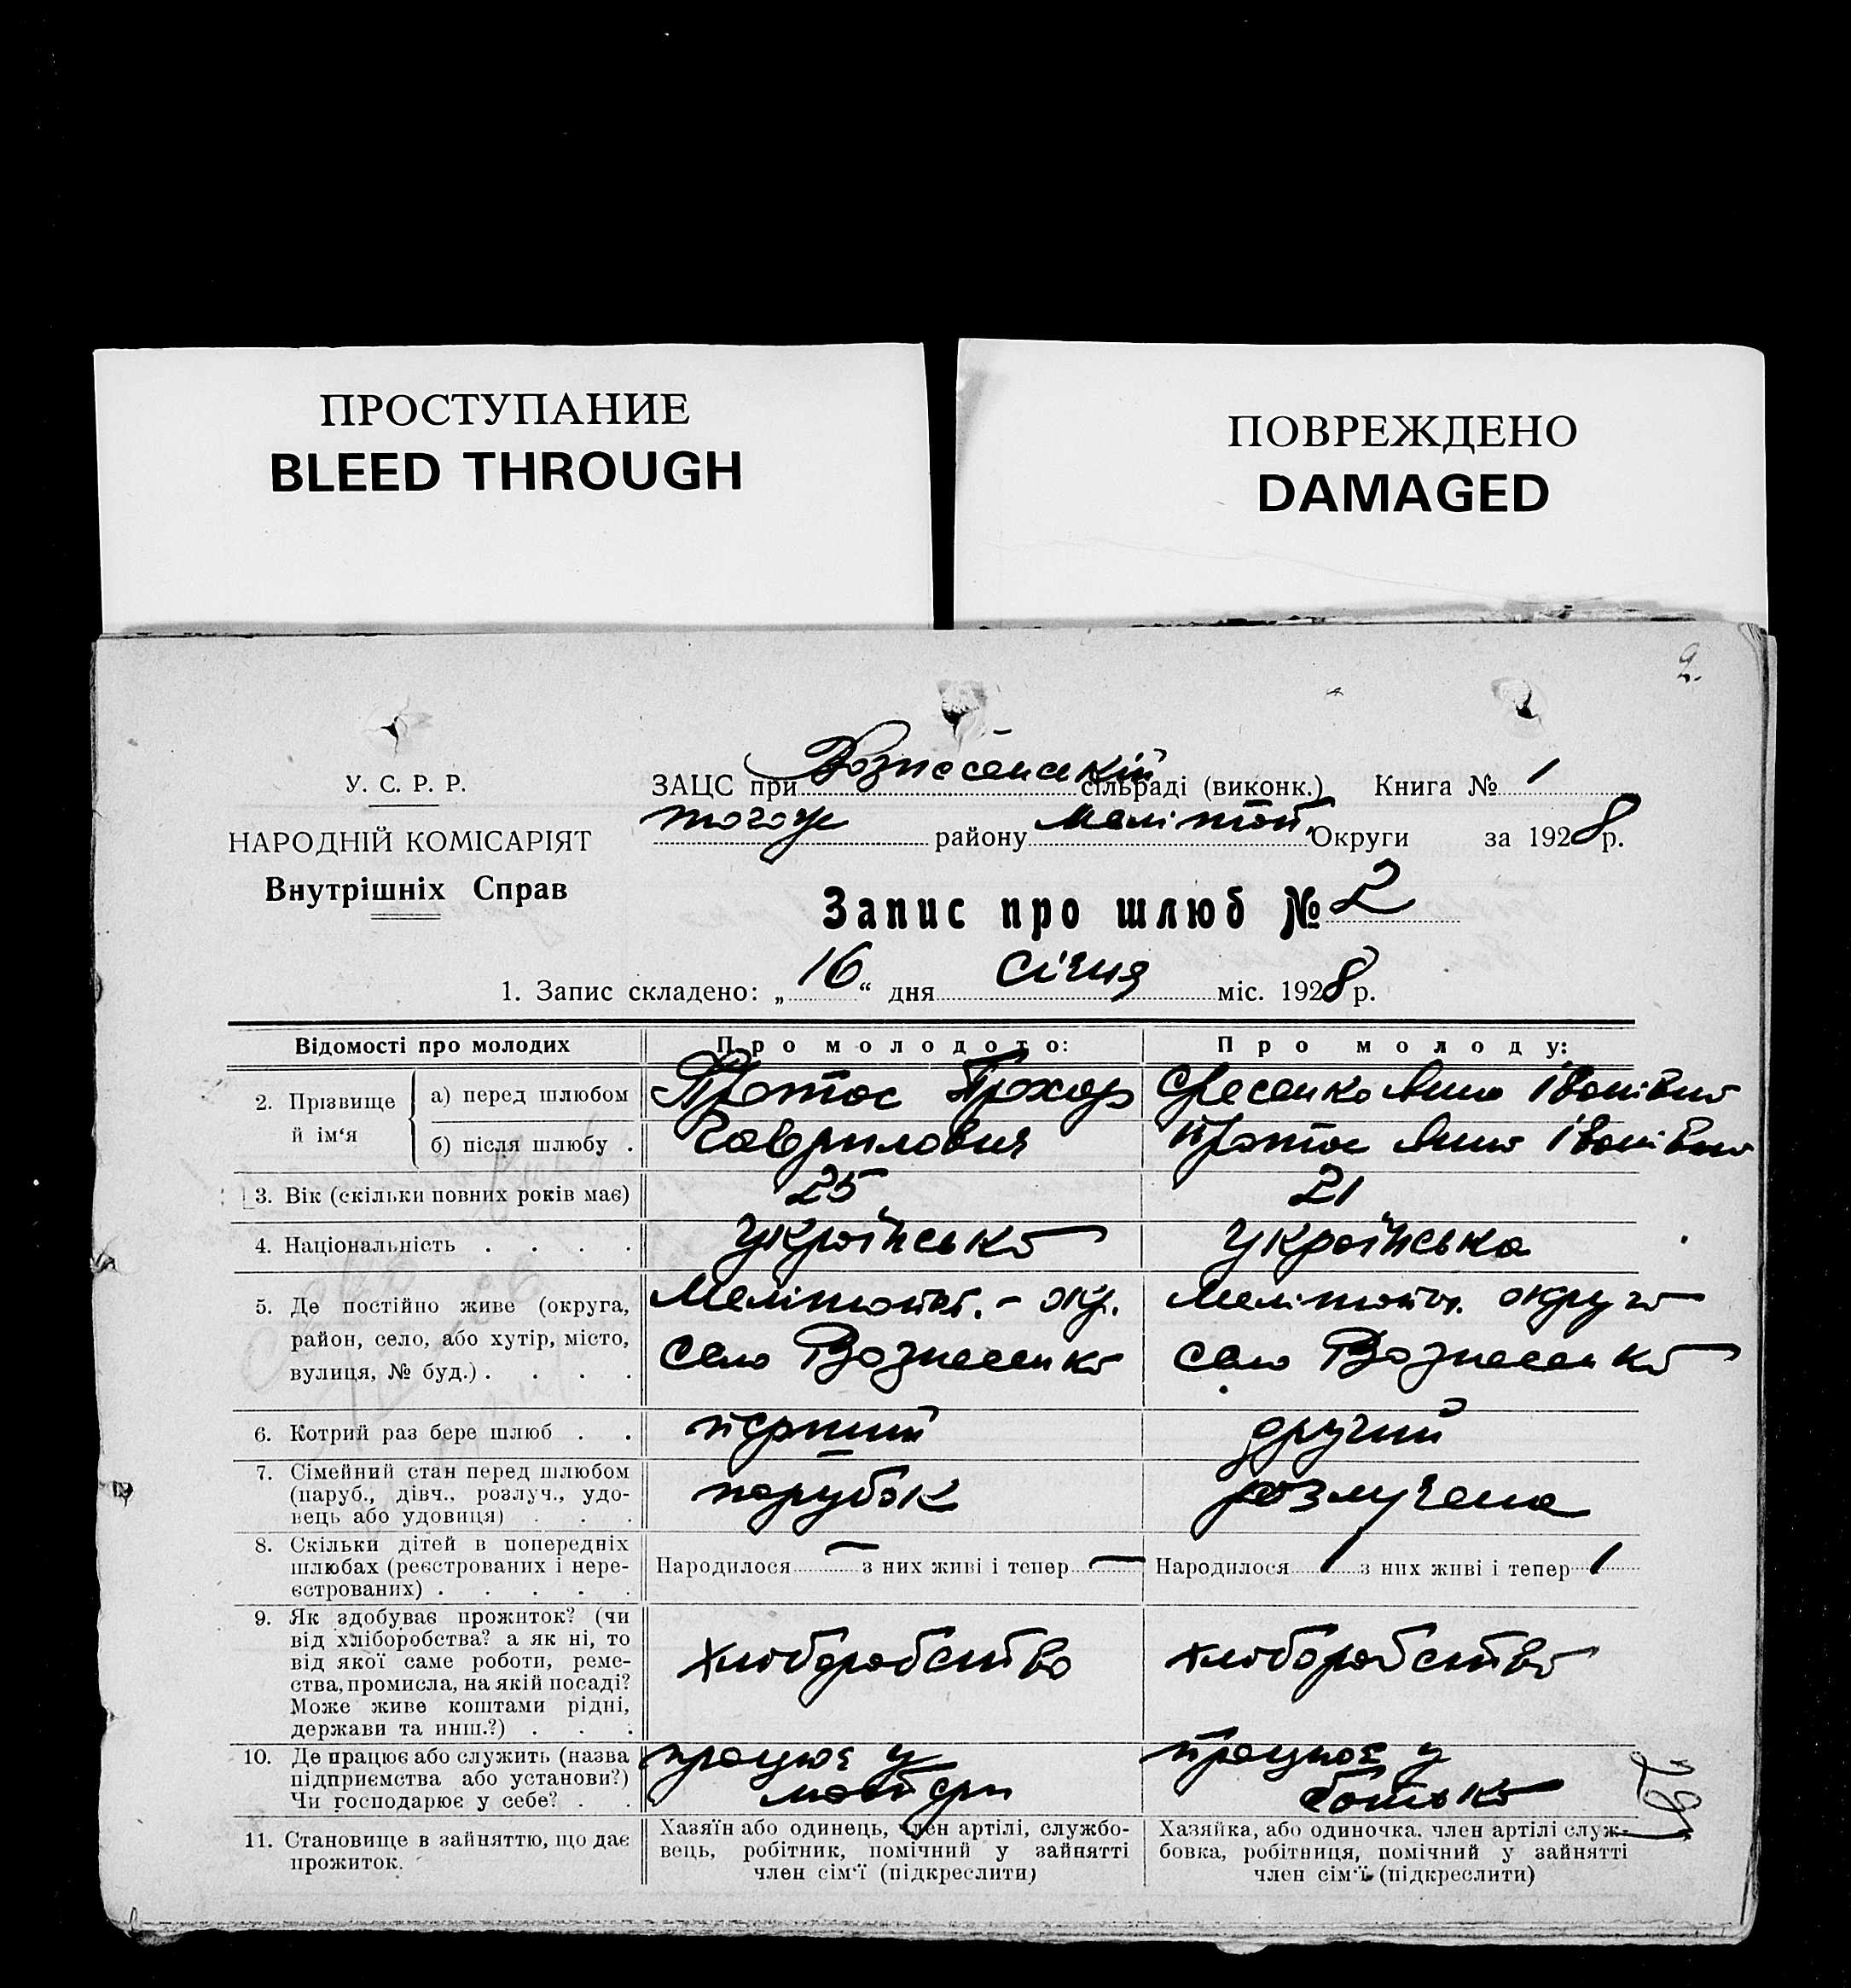 ПРОСТУПАНИЕ
BLEED THROUGH
ПОВРЕЖДЕНО
DAMAGED
2.
У. С. Р. Р.
НАРОДНІЙ КОМІСАРІЯТ
Внутрішніх Справ
ЗАЦС при Вознесенській сільраді (виконк.) Книга № 1
тогож району Мелітоп. Округи за 1928 р.
Запис про шлюб № 2
1. Запис складено: „16“ дня Січня міс. 1928 р.
Відомості про молодих
Про молодого:
Про молоду:
2. Прізвище й ім‘я
а) перед шлюбом
Протос Прохор
Анна Іванівна
б) після шлюбу .
Гаврилович
Протос Анна Іванівна
3. Вік (скільки повних років має)
25
21
4. Національність . . . .
Українська
Українська
5. Де постійно живе (округа,
район, село, або хутір, місто,
вулиця, № буд.) . . . .
Мелітопт. - окр.
село Вознесенка
Мелітопт. округа
село Вознесенка
6. Котрий раз бере шлюб . .
перший
другий
7. Сімейний стан перед шлюбом
(паруб., дівч., розлуч., удо-
вець або удовиця) . . .
парубок
розлучена
8. Скільки дітей в попередніх
шлюбах (реєстрованих і нере-
єстрованих) . . . . .
Народилося — з них живі і тепер —
Народилося 1 з них живі і тепер 1
9. Як здобуває прожиток? (чи
від хліборобства? а як ні, то
від якої саме роботи, реме-
ства, промисла, на якій посаді?
Може живе коштами рідні,
держави та инш.?) . . .
хліборобство
хліборобство
10. Де працює або служить (назва
підприємства або установи?)
Чи господарює у себе? . .
працює у
матери
працює у
батька
11. Становище в зайняттю, що дає
прожиток.
Хазяїн або одинець, член артілі, службо-
вець, робітник, помічний у зайнятті
член сім‘ї (підкреслити)
Хазяйка, або одиночка. член артілі служ-
бовка, робітниця, помічний у зайнятті
член сім‘ї (підкреслити)